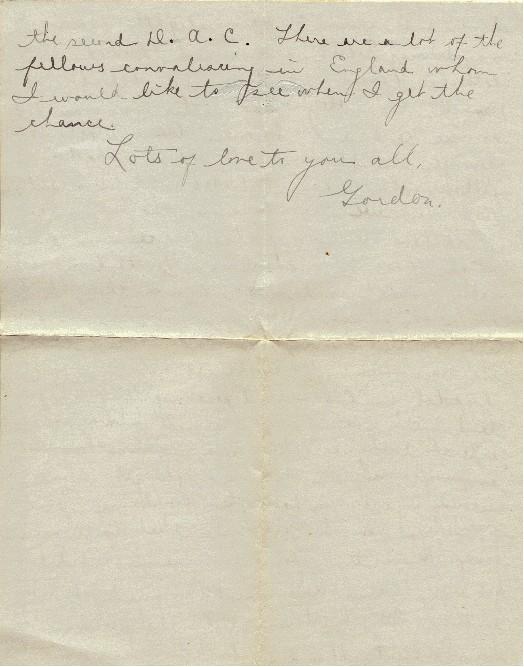 the second D. A. C. There are a lot of the
fellows convalescing in England whom
I would like to see when I get the
chance.
Lots of love to you all,
Gordon.